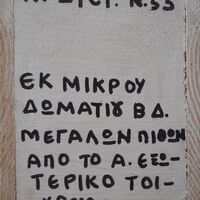 Ν.55
ΕΚ ΜΙΚΡΟΥ
ΔΩΜΑΤΙΟΥ ΒΔ.
ΜΕΓΑΛΩΝ ΠΙΘΩΝ
ΑΠΟ ΤΟ Α. ΕΞΩ-
ΤΕΡΙΚΟ ΤΟΙ-